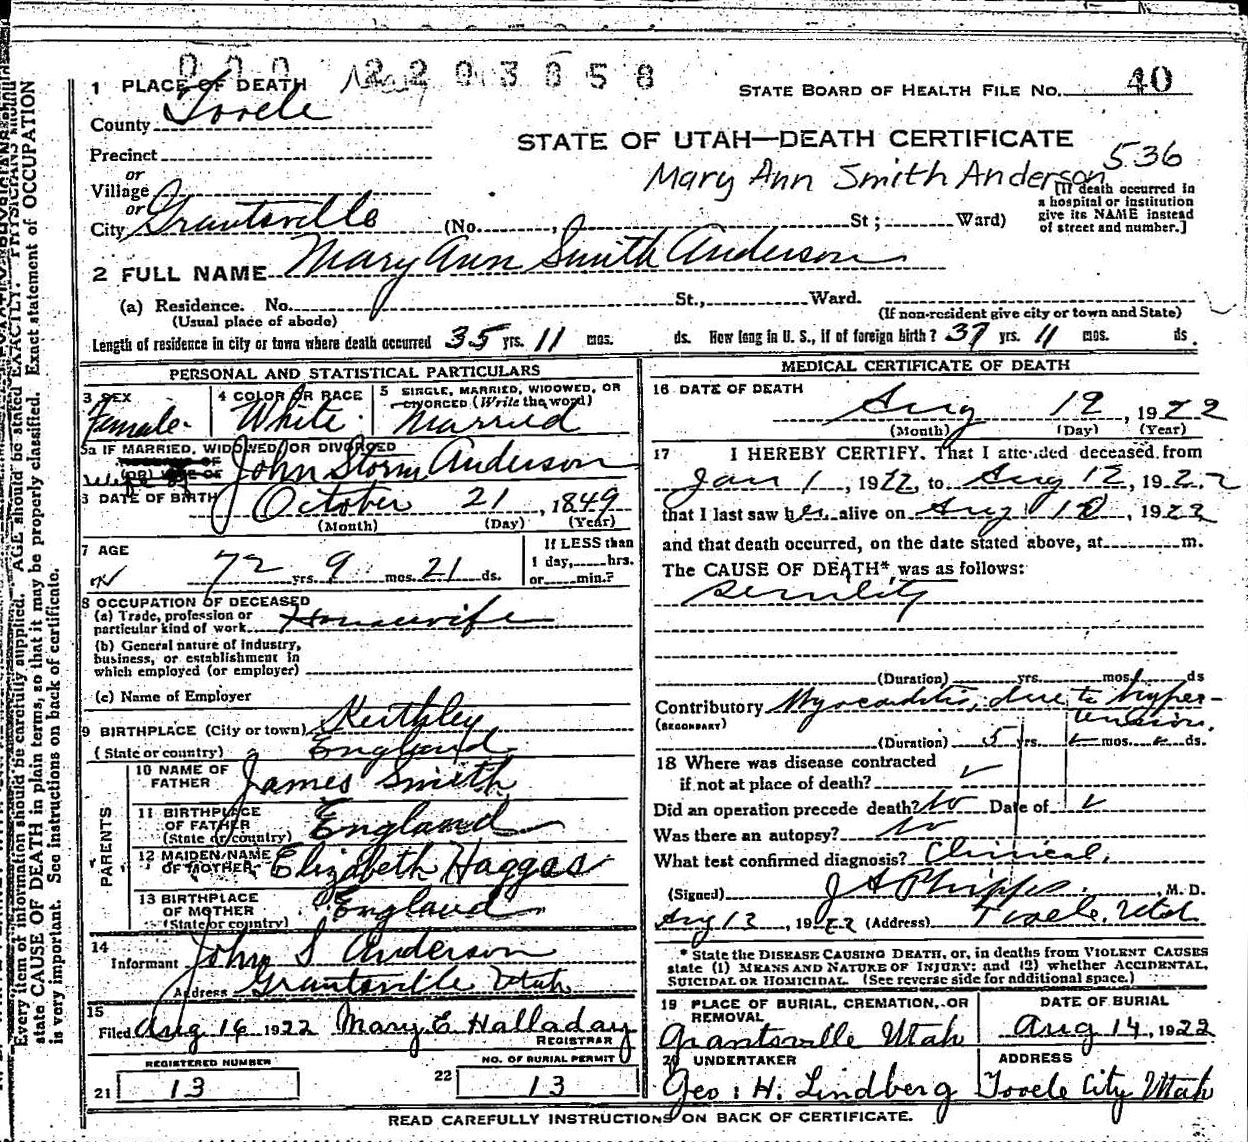 2203658
1 PLACE OF DEATH
STATE BOARD OF HEALTH FILE NO. 40
County Tooele
STATE OF UTAH—DEATH CERTIFICATE
Precinct
536
or
Mary Ann Smith Anderson
Village
or
[If death occurred in a hospital or institution give its NAME instead of street and number.]
City Grantsville (No. , St ; Ward)
2 FULL NAME Mary Ann Smith Anderson
(a) Residence. No. St., Ward.
(Usual place of abode) (If non-resident give city or town and State)
Length of residence in city or town where death occurred 35 yrs. 11 mos. ds. How long in U. S., if of foreign birth? 37 yrs. 11 mos. ds.
PERSONAL AND STATISTICAL PARTICULARS
3 SEX Female
4 COLOR OR RACE White
5 SINGLE, MARRIED, WIDOWED, OR DIVORCED (Write the word) Married
5a IF MARRIED, WIDOWED, OR DIVORCED
(OR) WIFE OF John Storm Anderson
6 DATE OF BIRTH October 21, 1849
(Month) (Day) (Year)
7 AGE 72 yrs. 9 mos. 21 ds.
If LESS than
1 day, hrs.
or min.?
8 OCCUPATION OF DECEASED
(a) Trade, profession or
particular kind of work Housewife
(b) General nature of industry,
business, or establishment in
which employed (or employer)
(c) Name of Employer
9 BIRTHPLACE (City or town) Keithley
(State or country) England
PARENTS
10 NAME OF FATHER James Smith
11 BIRTHPLACE OF FATHER (State or country) England
12 MAIDEN NAME OF MOTHER Elizabeth Haggas
13 BIRTHPLACE OF MOTHER (State or country) England
14
Informant John S Anderson
Address Grantsville Utah
15
Filed Aug 16 1922 Mary E Halladay
REGISTRAR
REGISTERED NUMBER
21 13
NO. OF BURIAL PERMIT
22 13
MEDICAL CERTIFICATE OF DEATH
16 DATE OF DEATH
Aug 12, 1922
(Month) (Day) (Year)
17 I HEREBY CERTIFY. That I attended deceased from
Jan 1, 1922, to Aug 12, 1922
that I last saw her alive on Aug 10, 1922
and that death occurred, on the date stated above, at m.
The CAUSE OF DEATH*, was as follows:
Senility
(Duration) yrs. mos. ds
Contributory Myocarditis, due to hyper-
(SECONDARY) tension.
(Duration) 5 yrs. mos. ds.
18 Where was disease contracted
if not at place of death?
Did an operation precede death? No Date of
Was there an autopsy? No
What test confirmed diagnosis? Clinical.
(Signed) J A Phipps, M. D.
Aug 12, 1922 (Address) Tooele, Utah
* State the DISEASE CAUSING DEATH, or, in deaths from VIOLENT CAUSES
state (1) MEANS AND NATURE OF INJURY; and (2) whether ACCIDENTAL,
SUICIDAL OR HOMICIDAL. (See reverse side for additional space.)
19 PLACE OF BURIAL, CREMATION, OR REMOVAL
Grantsville Utah
DATE OF BURIAL
Aug 14, 1922
20 UNDERTAKER
Geo. H. Lindberg
ADDRESS
Tooele City Utah
READ CAREFULLY INSTRUCTIONS ON BACK OF CERTIFICATE.
Every item of information should be carefully supplied. AGE should be stated EXACTLY. PHYSICIANS should
state CAUSE OF DEATH in plain terms, so that it may be properly classified. Exact statement of OCCUPATION
is very important. See instructions on back of certificate.